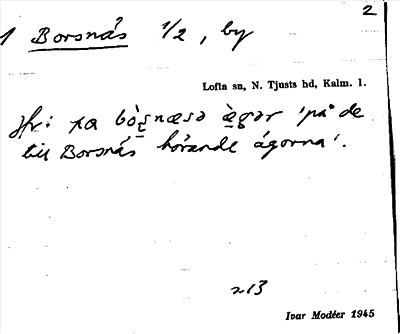 2
1 Borsnäs 1/2, by
Lofta sn, N. Tjusts hd, Kalm. l.
Hr: pa bò̱ṣnæsə æ̱̀gər 'på de
till Borsnäs hörande ägorna'.
213
Ivar Modéer 1945